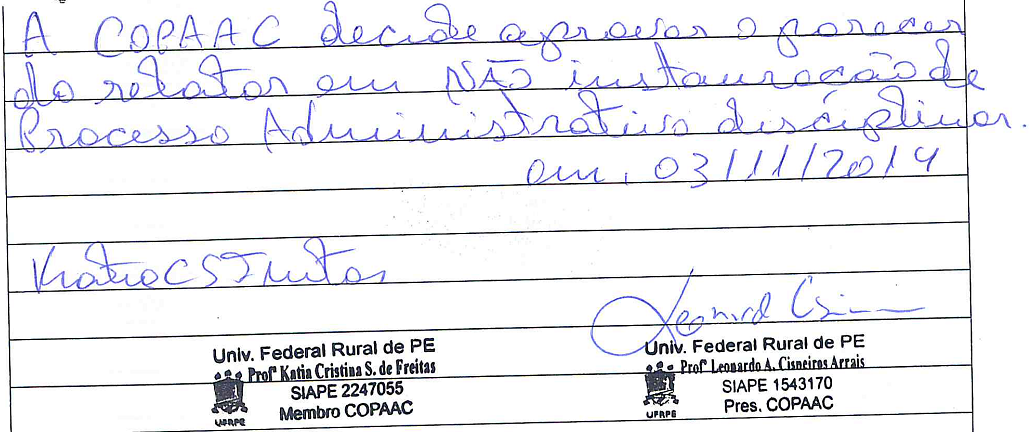 A COPAAC decide aprovar o parecer
do relator em NÃO instauração de
Processo Administrativo disciplinar.
em, 03/11/2014
Katia C S Freitas
Leonard Cisn
Univ. Federal Rural de PE
Profª Katia Cristina S. de Freitas
SIAPE 2247055
Membro COPAAC
UFRPE
Univ. Federal Rural de PE
Profº Leonardo A. Cisneiros Arrais
SIAPE 1543170
Pres. COPAAC
UFRPE